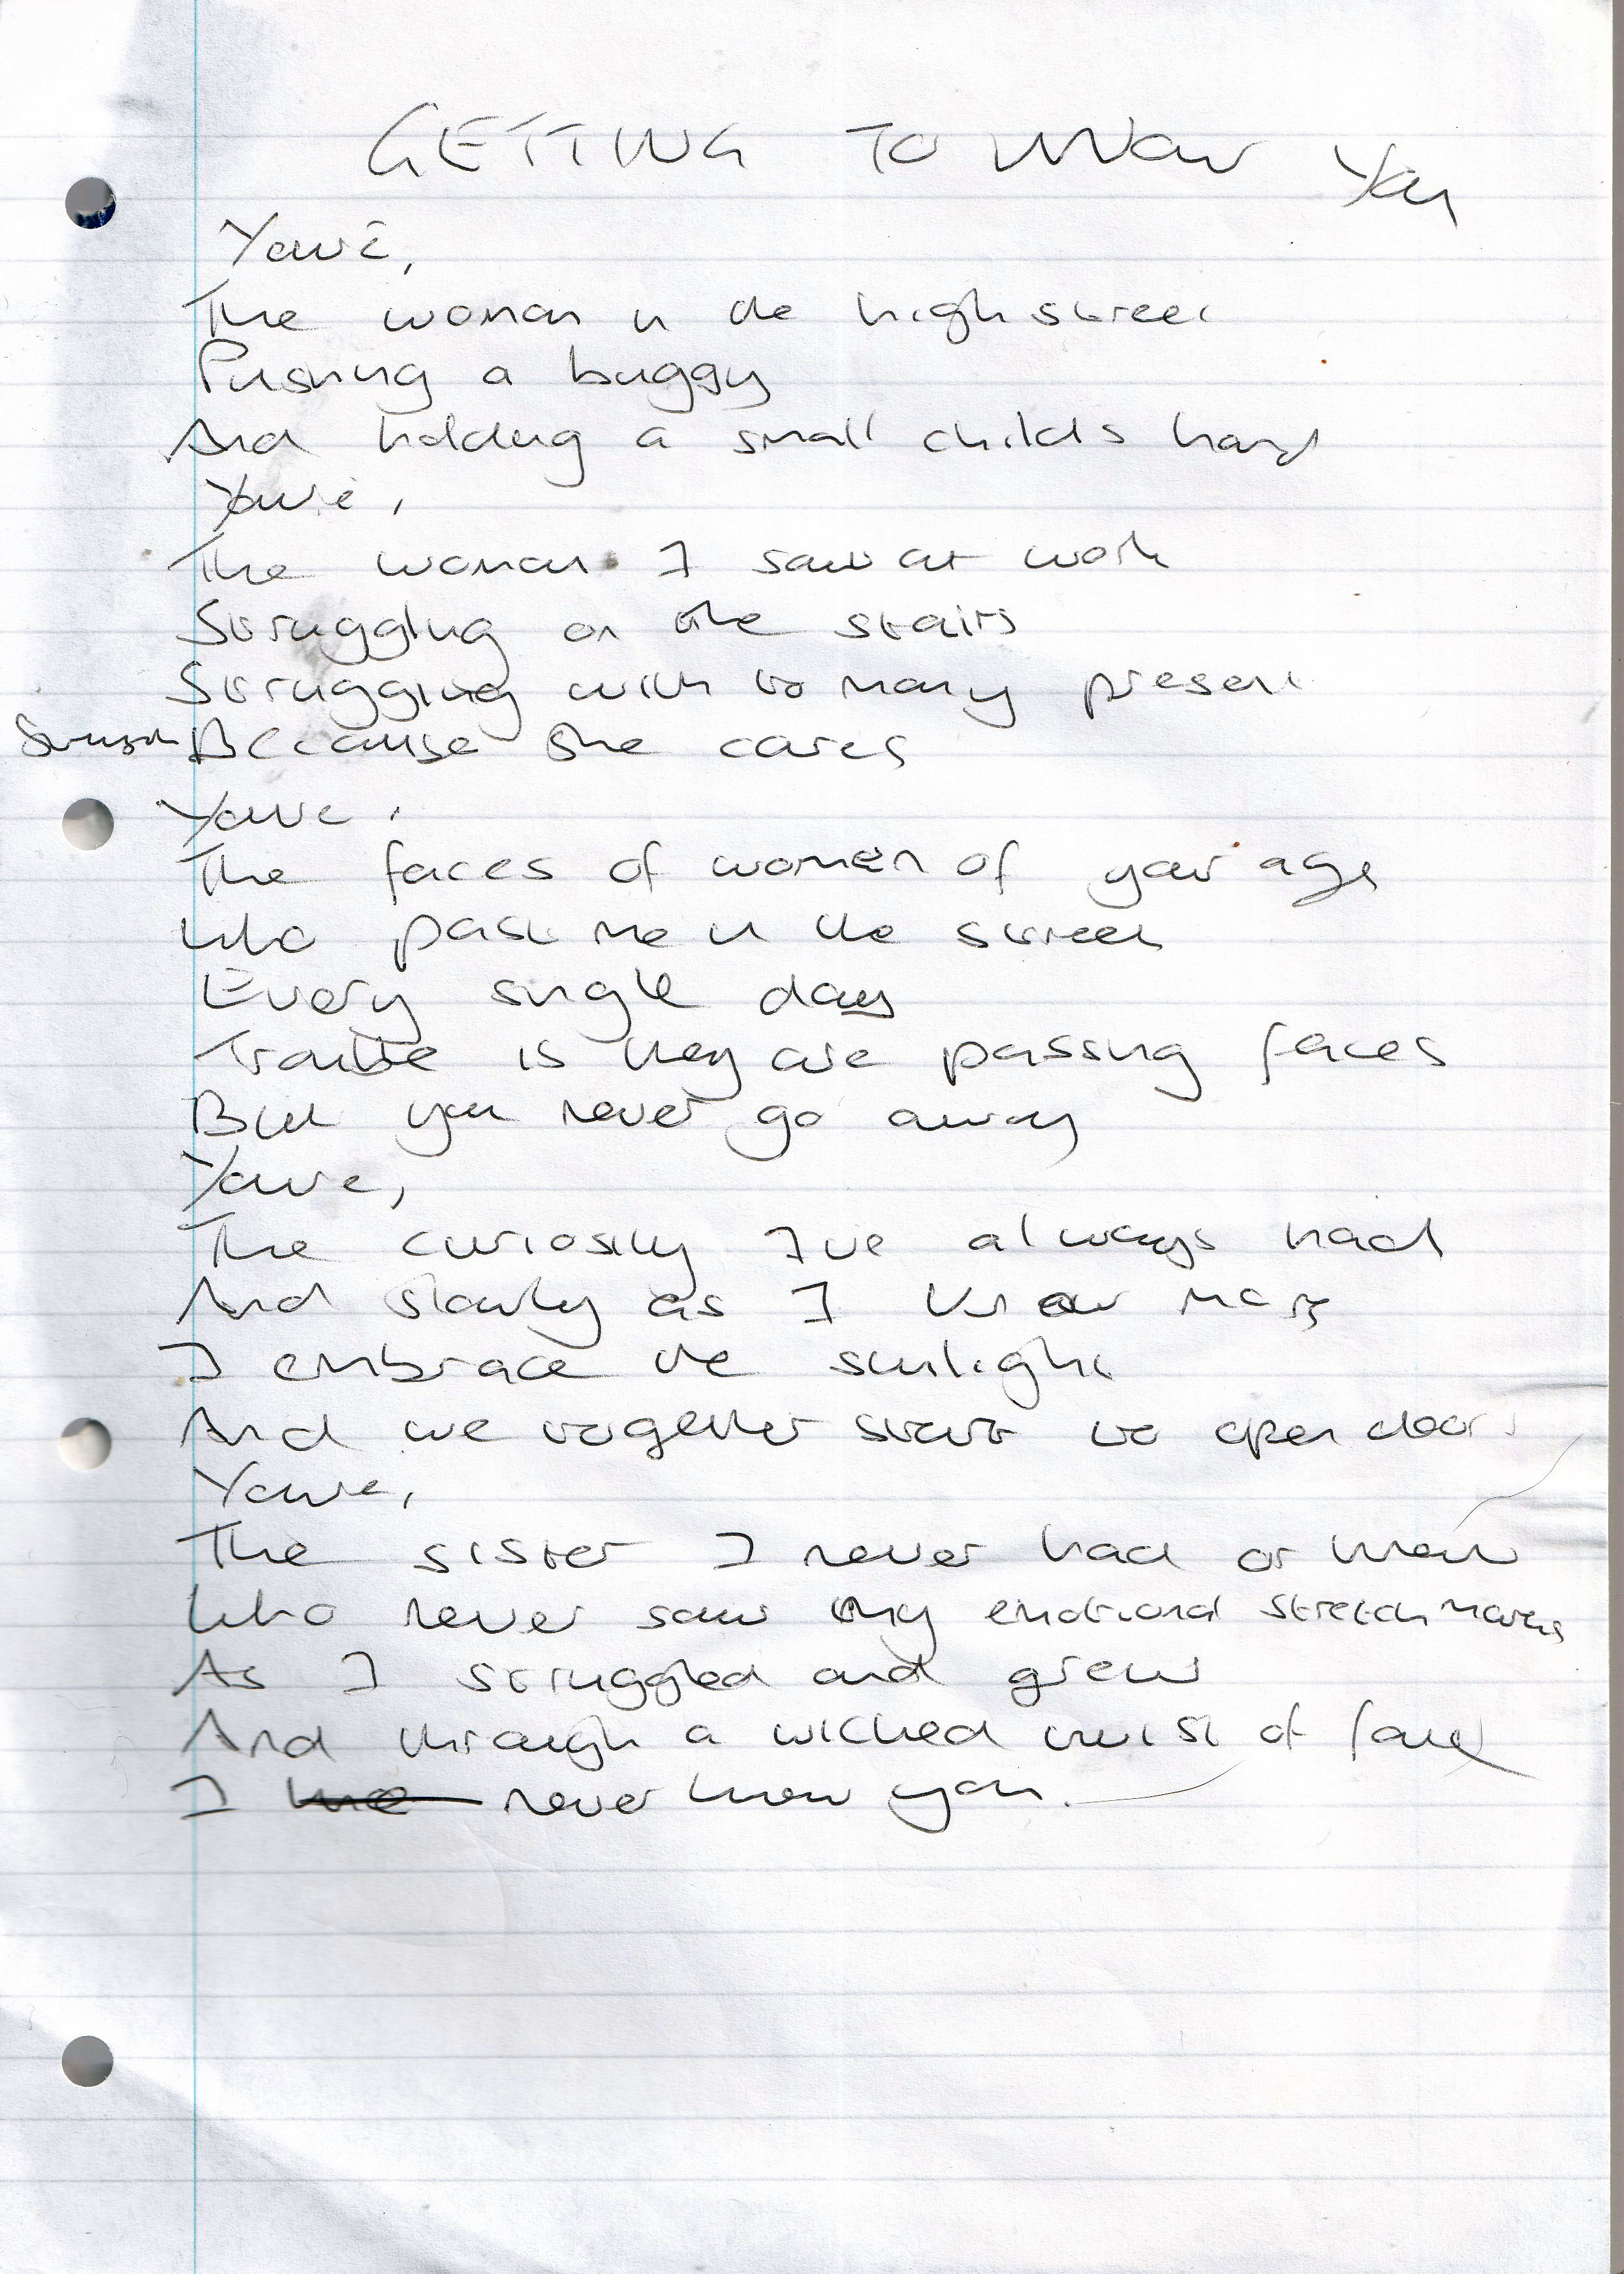 GETTING TO KNOW YOU
You're,
The woman in the high street
Pushing a buggy
And holding a small childs hand
You're,
The woman I saw at work
Struggling on the stairs
Struggling with to many present
Because she cares
You're,
The faces of women of your age
Who past me in the street
Every single day
Trouble is they are passing faces
But you never go away
You're,
The curiosity I've always had
And slowly as I know more
I embrace the sunlight
And we together start to open doors
You're,
The sister I never had or knew
Who never saw my emotional stretch marks
As I struggled and grew
And through a wicked twist of fate
I never knew you.